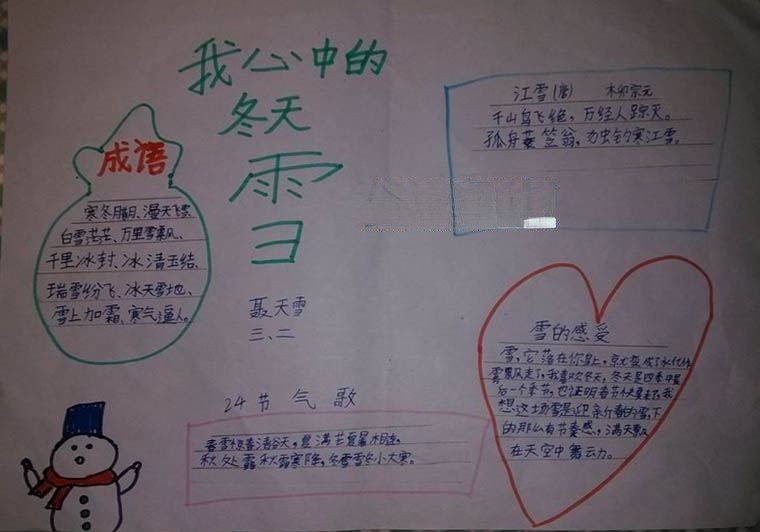 我心中的
冬天
雪
聂天雪
三、二
成语
寒冬腊月、漫天飞雪、
白雪茫茫、万里雪飘、
千里冰封、冰清玉结、
瑞雪纷飞、冰天雪地、
雪上加霜、寒气逼人。
江雪(唐) 柳宗元
千山鸟飞绝,万径人踪灭。
孤舟蓑笠翁,独钓寒江雪。
24节气歌
春雪惊春清谷天,夏满芒夏暑相连。
秋处露秋霜寒降,冬雪雪冬小大寒。
雪的感受
雪,它落在你身上,就变成了水
飘走了,我喜欢冬天,冬天是四季中最
后一个季节,也证明春节快要来了,我
想这场雪是迎新春的雪,下
的那么有节奏感,满天飘
在天空中舞动。